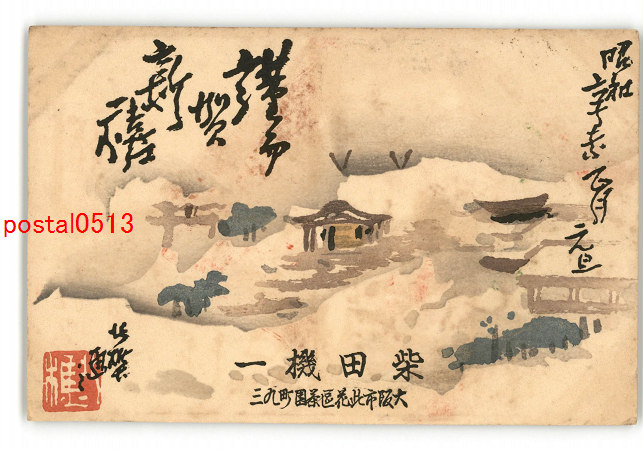 昭和辛未正月元旦
謹而
賀
新
禧
postal0513
柴田機一
大阪市此花區茶園町九三